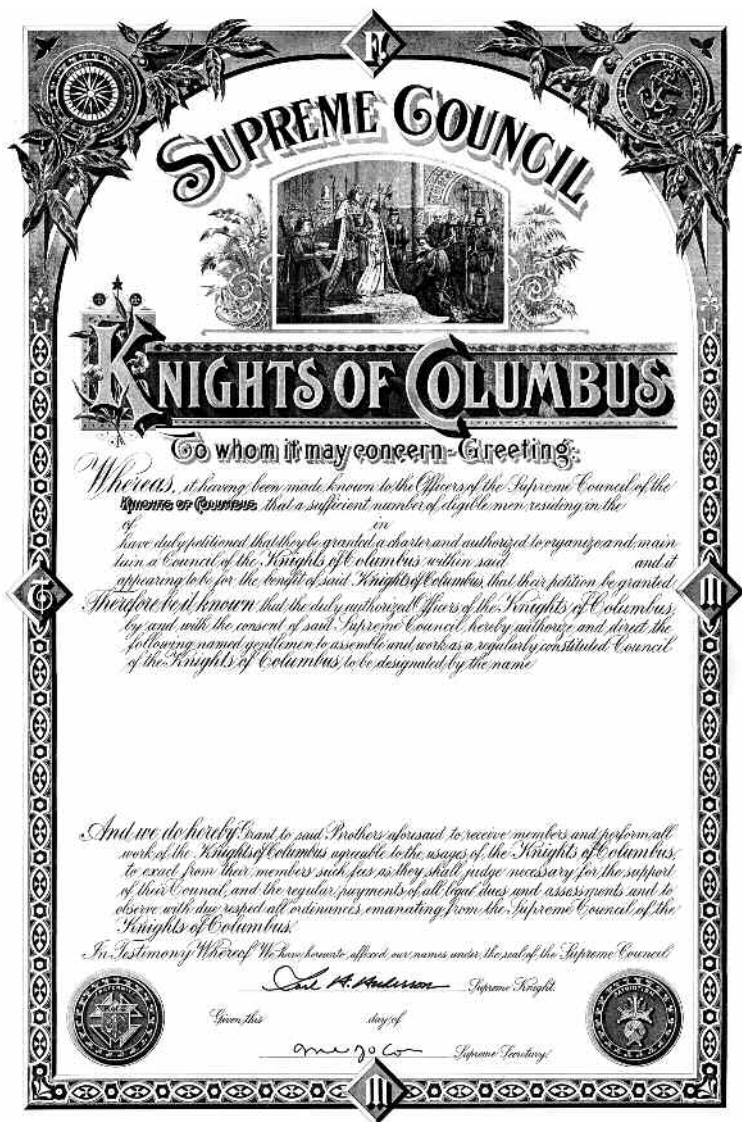 F.
SUPREME COUNCIL
KNIGHTS OF COLUMBUS
To whom it may concern-Greeting:
Whereas, it having been made known to the Officers of the Supreme Council of the
KNIGHTS OF COLUMBUS, that a sufficient number of eligible men residing in the
of in
have duly petitioned that they be granted a charter and authorized to organize and main
tain a Council of the Knights of Columbus within said and it
appearing to be for the benefit of said Knights of Columbus, that their petition be granted
Therefore be it known that the duly authorized Officers of the Knights of Columbus,
by and with the consent of said Supreme Council, hereby authorize and direct the
following named gentlemen to assemble and work as a regularly constituted Council
of the Knights of Columbus, to be designated by the name
And we do hereby Grant to said Brothers aforesaid to receive members and perform all
work of the Knights of Columbus agreeable to the usages of the Knights of Columbus,
to exact from their members such fees as they shall judge necessary for the support
of their Council, and the regular payments of all legal dues and assessments and to
observe with due respect all ordinances, emanating from the Supreme Council of the
Knights of Columbus.
In Testimony Whereof We have hereunto affixed our names under the seal of the Supreme Council
Carl A. Anderson Supreme Knight.
Given this day of
Supreme Secretary.